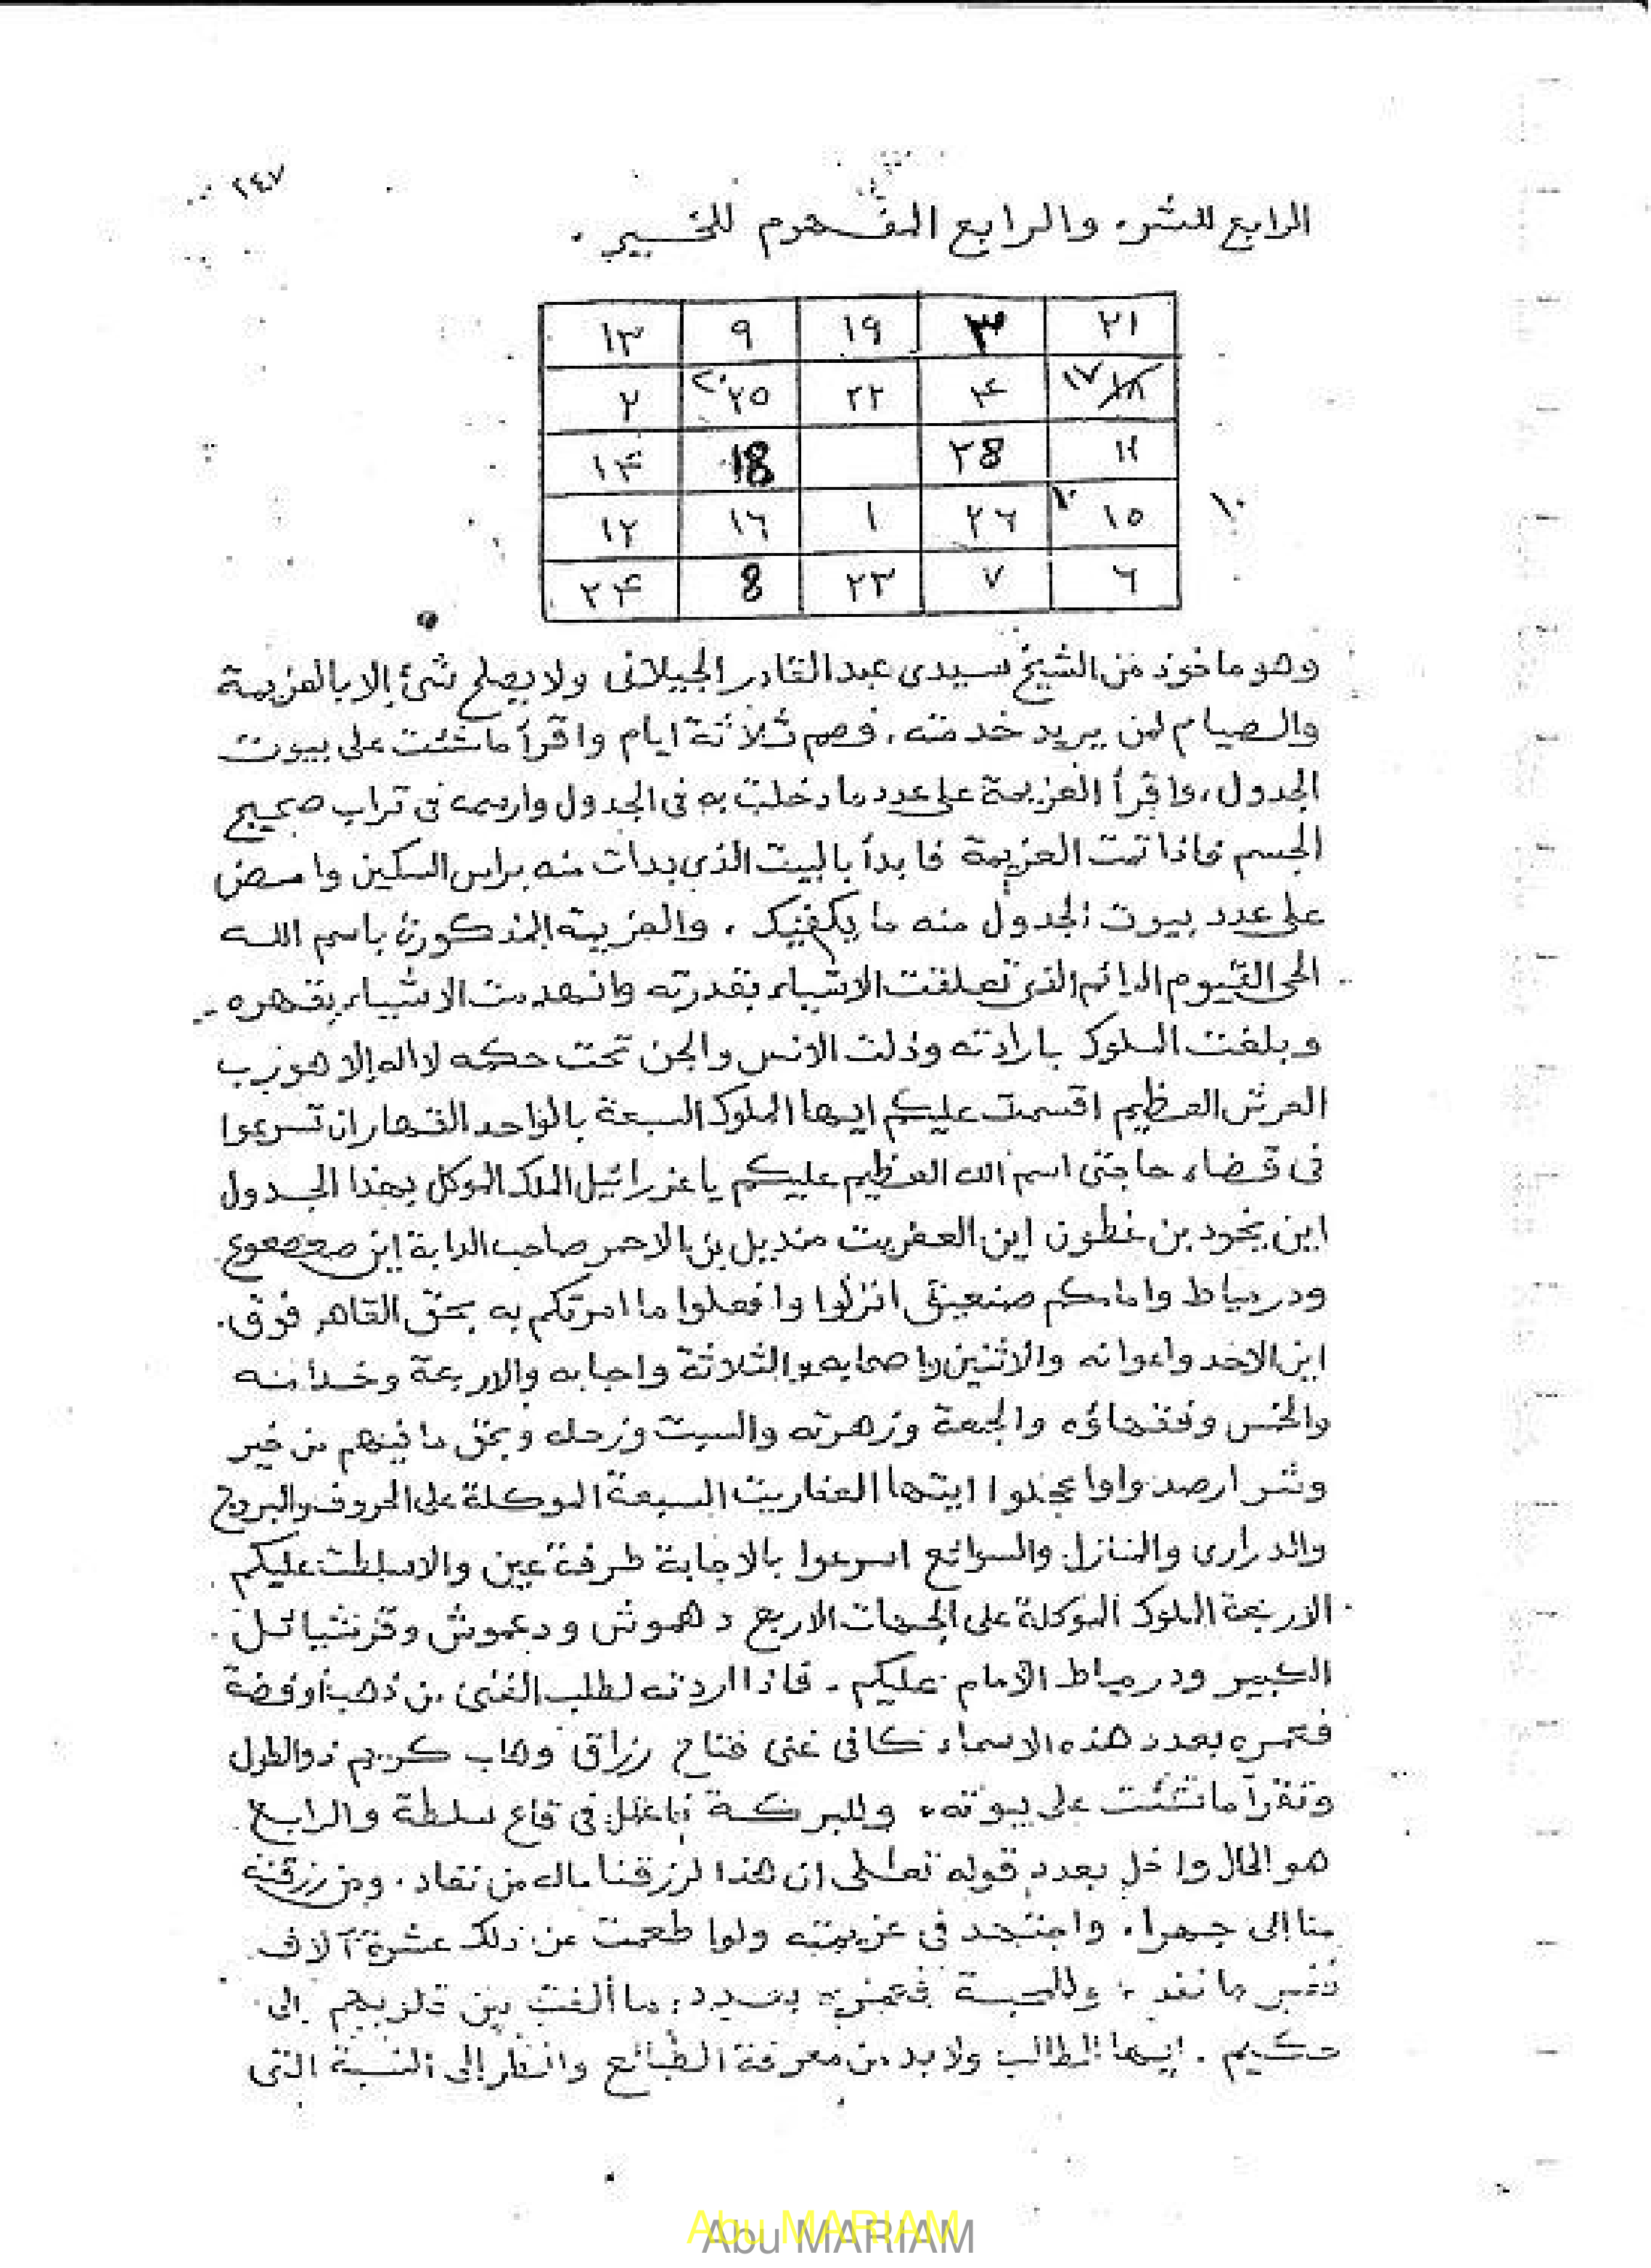 ٢٤٧
الرابع للشر. والرابع المفهوم للخير.
٢١ ٣ ١٩ ٩ ١٣
١٧ ١٨ ٤ ٢٢ ٢٥ ٢٠ ٢
١١ ٢8 18 ١٤
١٠ ١٥ ١٠ ٢٦ ١ ١٦ ١٢
٦ ٧ ٢٣ 8 ٢٤
وهو ماخوذ من الشيخ سيدى عبد القادر الجيلانى ولا يصلح شئ إلا بالعزيمة
والصيام لمن يريد خدمته، فصم ثلاثة ايام واقرأ ما شئت على بيوت
الجدول، واقرأ العزيمة على عدد ما دخلت به فى الجدول وارسمه فى تراب صحيح
الجسم فاذا تمت العزيمة فابدأ بالبيت الذى بدات منه براس السكين وامض
على عدد بيوت الجدول منه ما يكفيك. والعزيمة المذكورة باسم الله
الحى القيوم الدائم الذى تعلقت الاشياء بقدرته وانهدمت الاشياء بقهره
وبلغت السلوك بارادته وذلت الانس والجن تحت حكمه لا اله إلا هو رب
العرش العظيم اقسمت عليكم ايها الملوك السبعة بالواحد القهار ان تسرعوا
فى قضاء حاجتى اسم الله العظيم عليكم يا عزرائيل الملك الموكل بهذا الجدول
اين يخود بن غطون اين العفريت منديل بن الاحمر صاحب الدابة اين صعصعوع
ودرمياط وامامكم صنعيق انزلوا وافعلوا ما امرتكم به بحق القاهر فوق.
اين الاحد واعوانه والاثنين واصحابه والثلاثة واحبابه والاربعة وخدامه
والخمس وفقهاؤه والجمعة وزهرته والسبت وزحله وبحق ما فيهم من خير
وشر ارصدوا وا عجلوا ايتها العفاريت السبعة الموكلة على الحروف والبروج
والدرارى والمنازل والسوائع اسرعوا بالاجابة طرفة عين والا سلطت عليكم
الاربعة الملوك الموكلة على الجهات الاربع دهموش ودعموش وقرنشيائل
الكبير ودرمياط الامام عليكم. فاذا اردته لطلب الغنى من ذهب أو فضة
فعمره بعدد هذه الاسماء كافى غنى فتاح رزاق وهاب كريم ذو الطول
وتقرأ ما شئت على بيوته. وللبركة فى قاع سلطة والرابع
هو الحال واخل بعدد قوله تعالى ان هذا لرزقنا ماله من نفاد. ومن رزقنه
منا الى جهرا. واجتهد فى عزيمته ولوا طعمت من ذلك عشرة آلاف
ما نفد. وللمحبة فعمره بعدد: ما ألفت بين قلوبهم إلى
حكيم. ايها الطالب ولا بد من معرفة الطبائع وانظر إلى النسبة التى
Abu MARIAM
Abu MARIAM